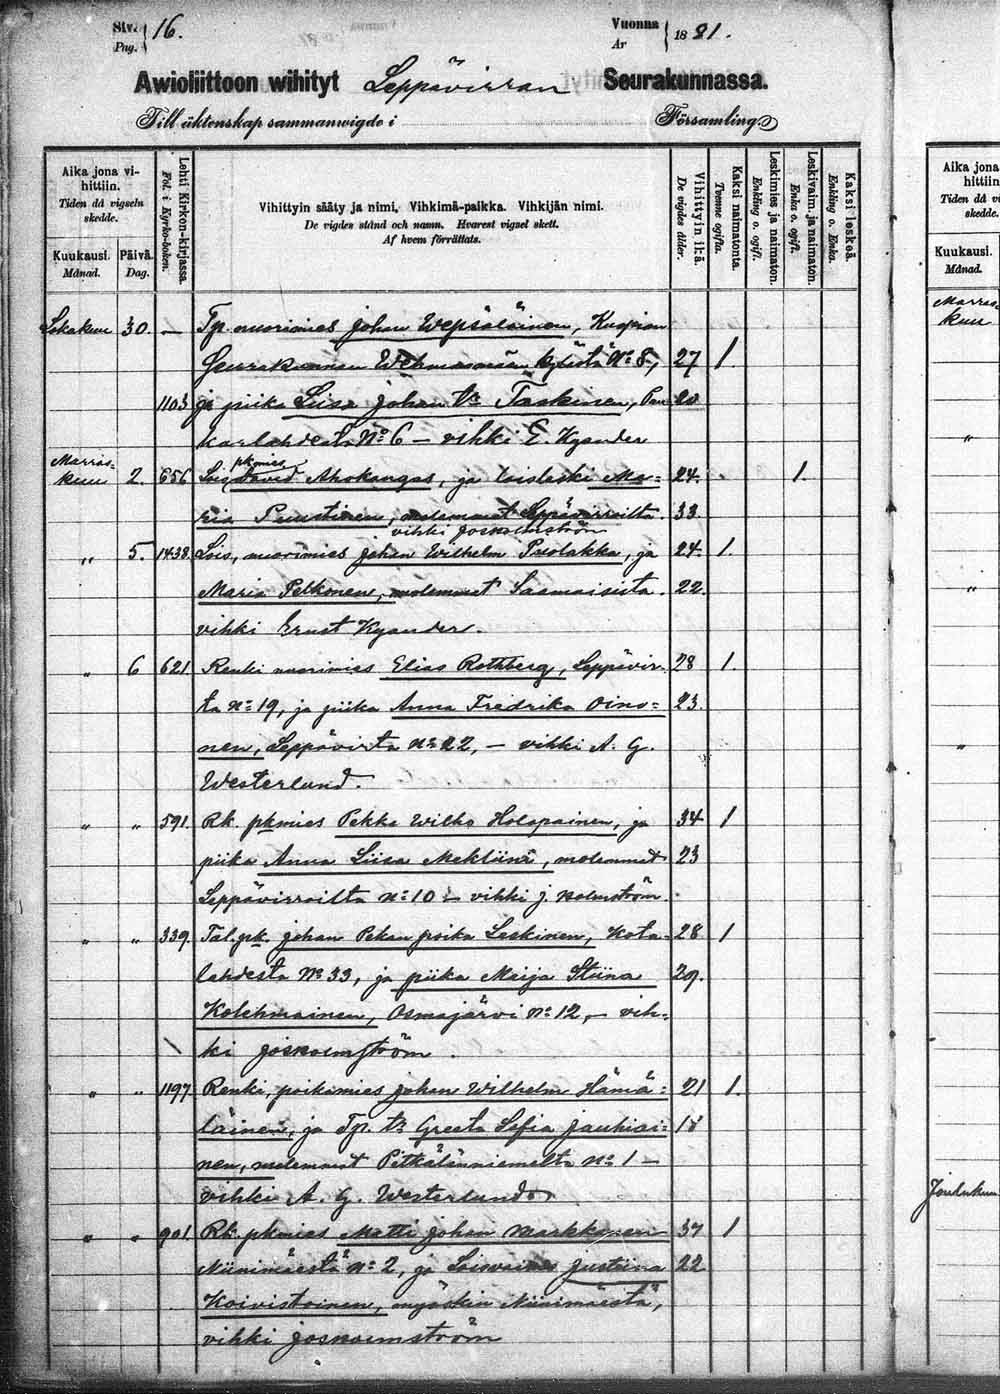 Siv. Pag. 16. Vuonna År 1881.
Awioliittoon wihityt Leppävirran Seurakunnassa.
Till äktenskap sammanwigde i Församling.
Aika jona vihittiin. Tiden då vigseln skedde.
Kuukausi. Månad. Päivä. Dag.
Lehti Kirkon-kirjassa. Fol. i Kyrko-boken.
Vihittyin sääty ja nimi, Vihkimä-paikka. Vihkijän nimi.
De vigdes stånd och namn. Hvarest vigsel skett.
Af hvem förrättats.
Vihittyin ikä. De vigdes ålder.
Kaksi naimatonta. Tvenne ogifta.
Leskimies ja naimaton. Enkling o. ogift.
Leskivaim ja naimaton. Enka o. ogift.
Kaksi leskeä. Enkling o. Enka.
Lokakuu 30. — Tp. nuorimies Johan Wepsäläinen, Kuopion
Seurakunnan Wehmasmäen kylästä No 8, 27 1.
1103 ja piika Liisa Johan tr Taskinen, Pau 20
karlahdesta No 6 — vihki E. Kyander
Marraskuu 2. 656 pkmies David Ahokangas, ja loisleski Ma= 24. 1.
ria Puustinen, molemmat Leppävirroilta. 33.
vihki Jos Holmström
„ 5. 1438. Lois, nuorimies Johan Wilhelm Puolakka, ja 24. 1.
Maria Pelkonen, molemmat Saamaisista. 22.
vihki Ernst Kyander.
„ 6 621. Renki nuorimies Elias Rothberg, Leppävir- 28 1.
ta No 19, ja piika Anna Fredrika Oino= 23.
nen, Leppävirta No 22, — vihki A. G.
Westerlund.
„ „ 591. Rk. pkmies Pekka Wilho Holopainen, ja 34 1
piika Anna Liisa Meklin, molemmat 23
Leppävirroilta No 10 — vihki J. Holmström.
„ „ 339. Tal. pk. Johan Pekan poika Leskinen, Kota- 28 1
lahdesta No 33, ja piika Maija Stiina 29.
Kolehmainen, Osmajärvi No 12, — vih-
ki Jos Holmström.
„ „ 1197. Renki, poikamies Johan Wilhelm Hämä= 21 1.
läinen, ja Tp. tr Greeta Sofia Jauhiai= 18
nen, molemmat Pitkälänniemeltä No 1 —
vihki A. G. Westerlund
„ „ 901. Rk. pkmies Matti Johan Markkanen 37 1
Niinimäestä No 2, ja Justiina 22
Koivistoinen, myöskin Niinimäestä,
vihki Jos Holmström
Aika jona
hittiin
Tiden då vi
skedde.
Kuukausi.
Månad.
Marras-
kuu
„
„
„
Joulukuu